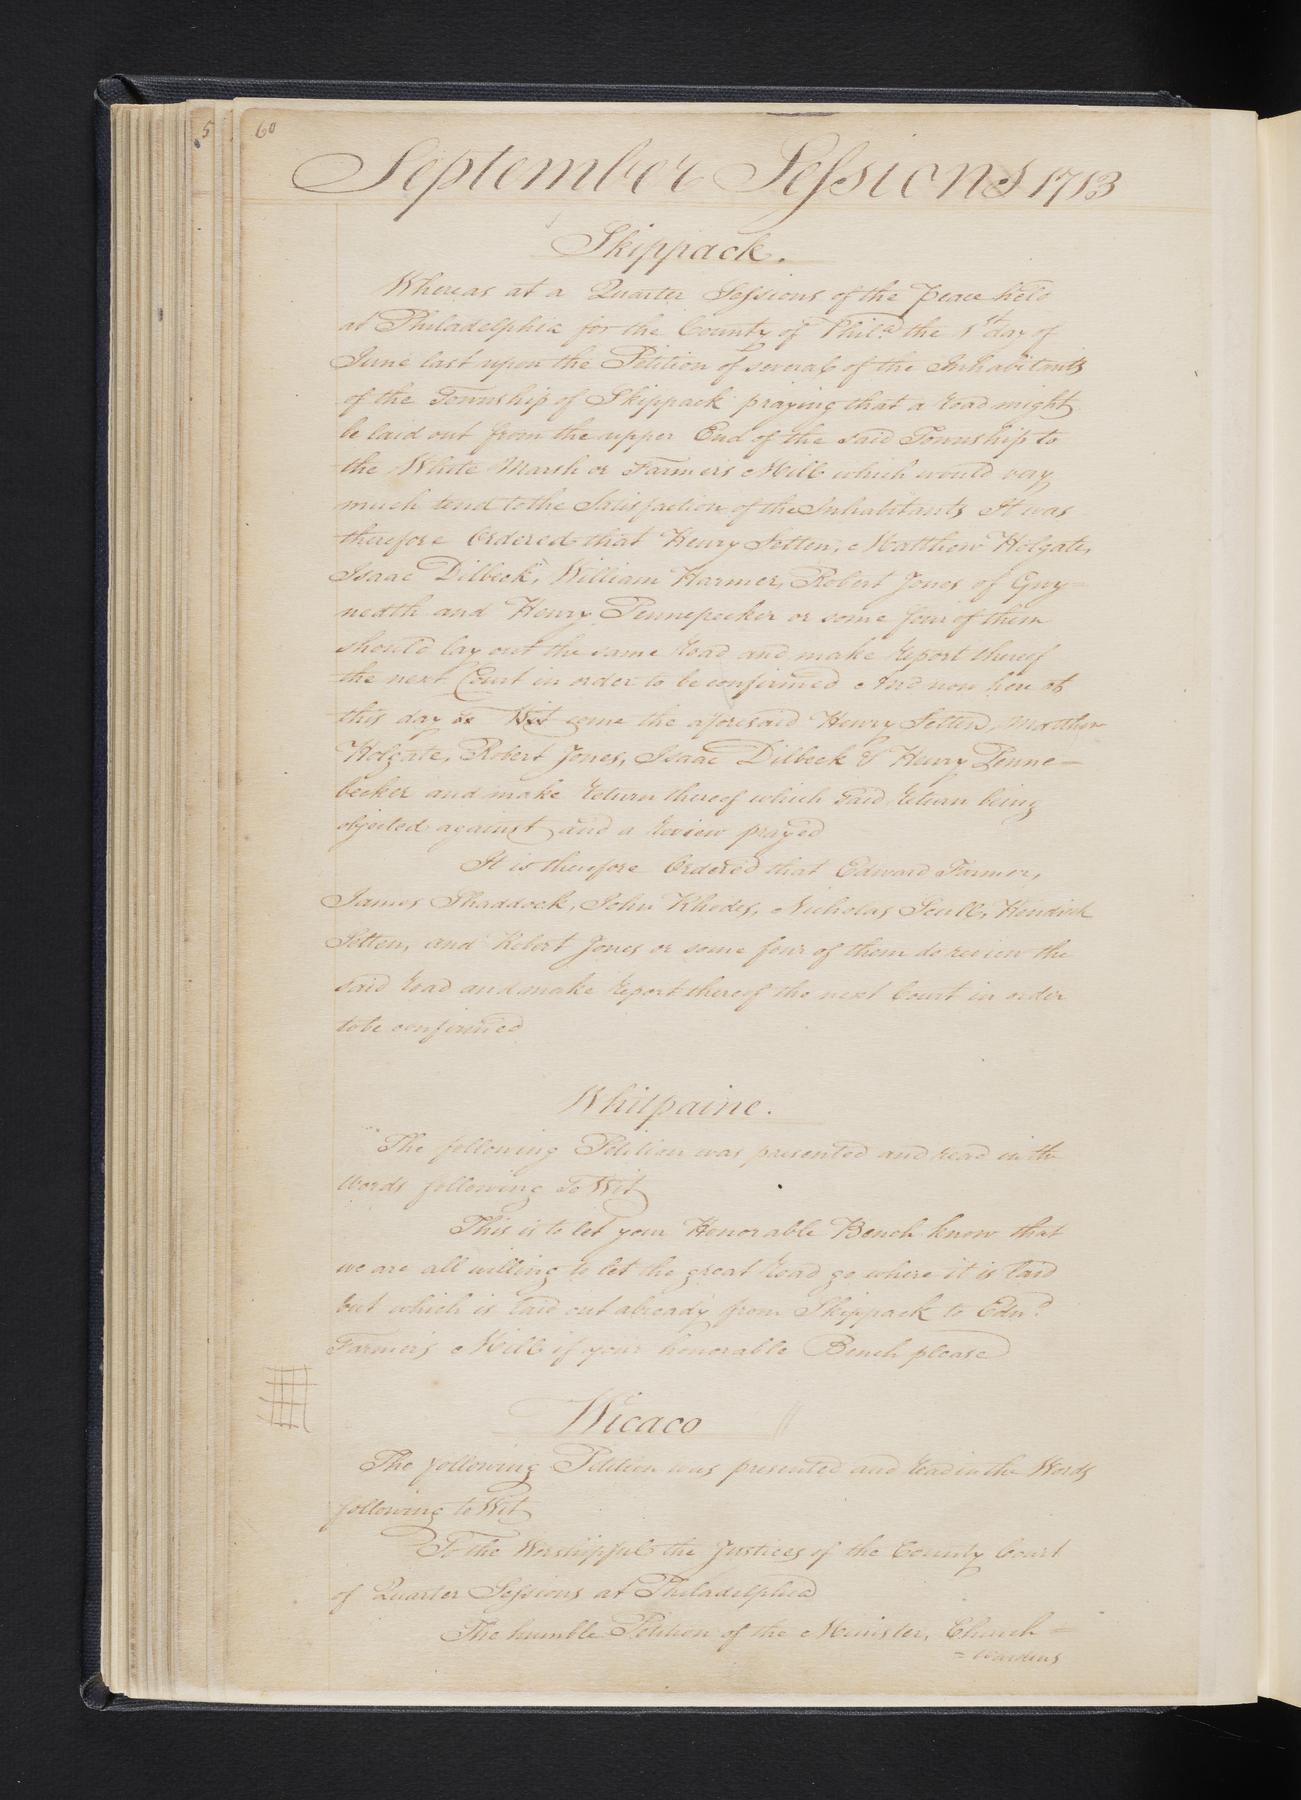 5
60
September Sessions 1713
Skippack.
Whereas at a Quarter Sessions of the Peace held
at Philadelphia for the County of Phila. the 1st day of
June last upon the Petition of several of the Inhabitants
of the Township of Skippack praying that a Road might
be laid out from the upper End of the said Township to
the White Marsh or Farmers Mill which would very
much tend to the Satisfaction of the Inhabitants It was
therefore Ordered that Henry Setten, Matthew Holgate,
Isaac Dilbeck, William Harmer, Robert Jones of Gwy=
nedth and Henry Pennepecker or some four of them
should lay out the same Road and make Report thereof
the next Court in order to be confirmed And now here at
this day to Wit come the aforesaid Henry Setten, Matthew
Holgate, Robert Jones, Isaac Dilbeck & Henry Penne=
becker and make Return thereof which said Return being
objected against and a Review prayed
It is therefore Ordered that Edward Farmer,
James Shaddock, John Rhodes, Nicholas Scull, Hendrick
Setten, and Robert Jones or some four of them do review the
said Road and make Report thereof the next Court in order
to be confirmed
Whitpaine.
The following Petition was presented and read in the
Words following To Wit
This is to let your Honorable Bench know that
we are all willing to let the great Road go where it is laid
but which is laid out already from Skippack to Edwd.
Farmer's Mill if your honorable Bench please
Wicaco
The following Petition was presented and Read in the Words
following to Wit
To the Worshipful the Justices of the County Court
of Quarter Sessions at Philadelphia
The humble Petition of the Minister, Church =
= Wardens